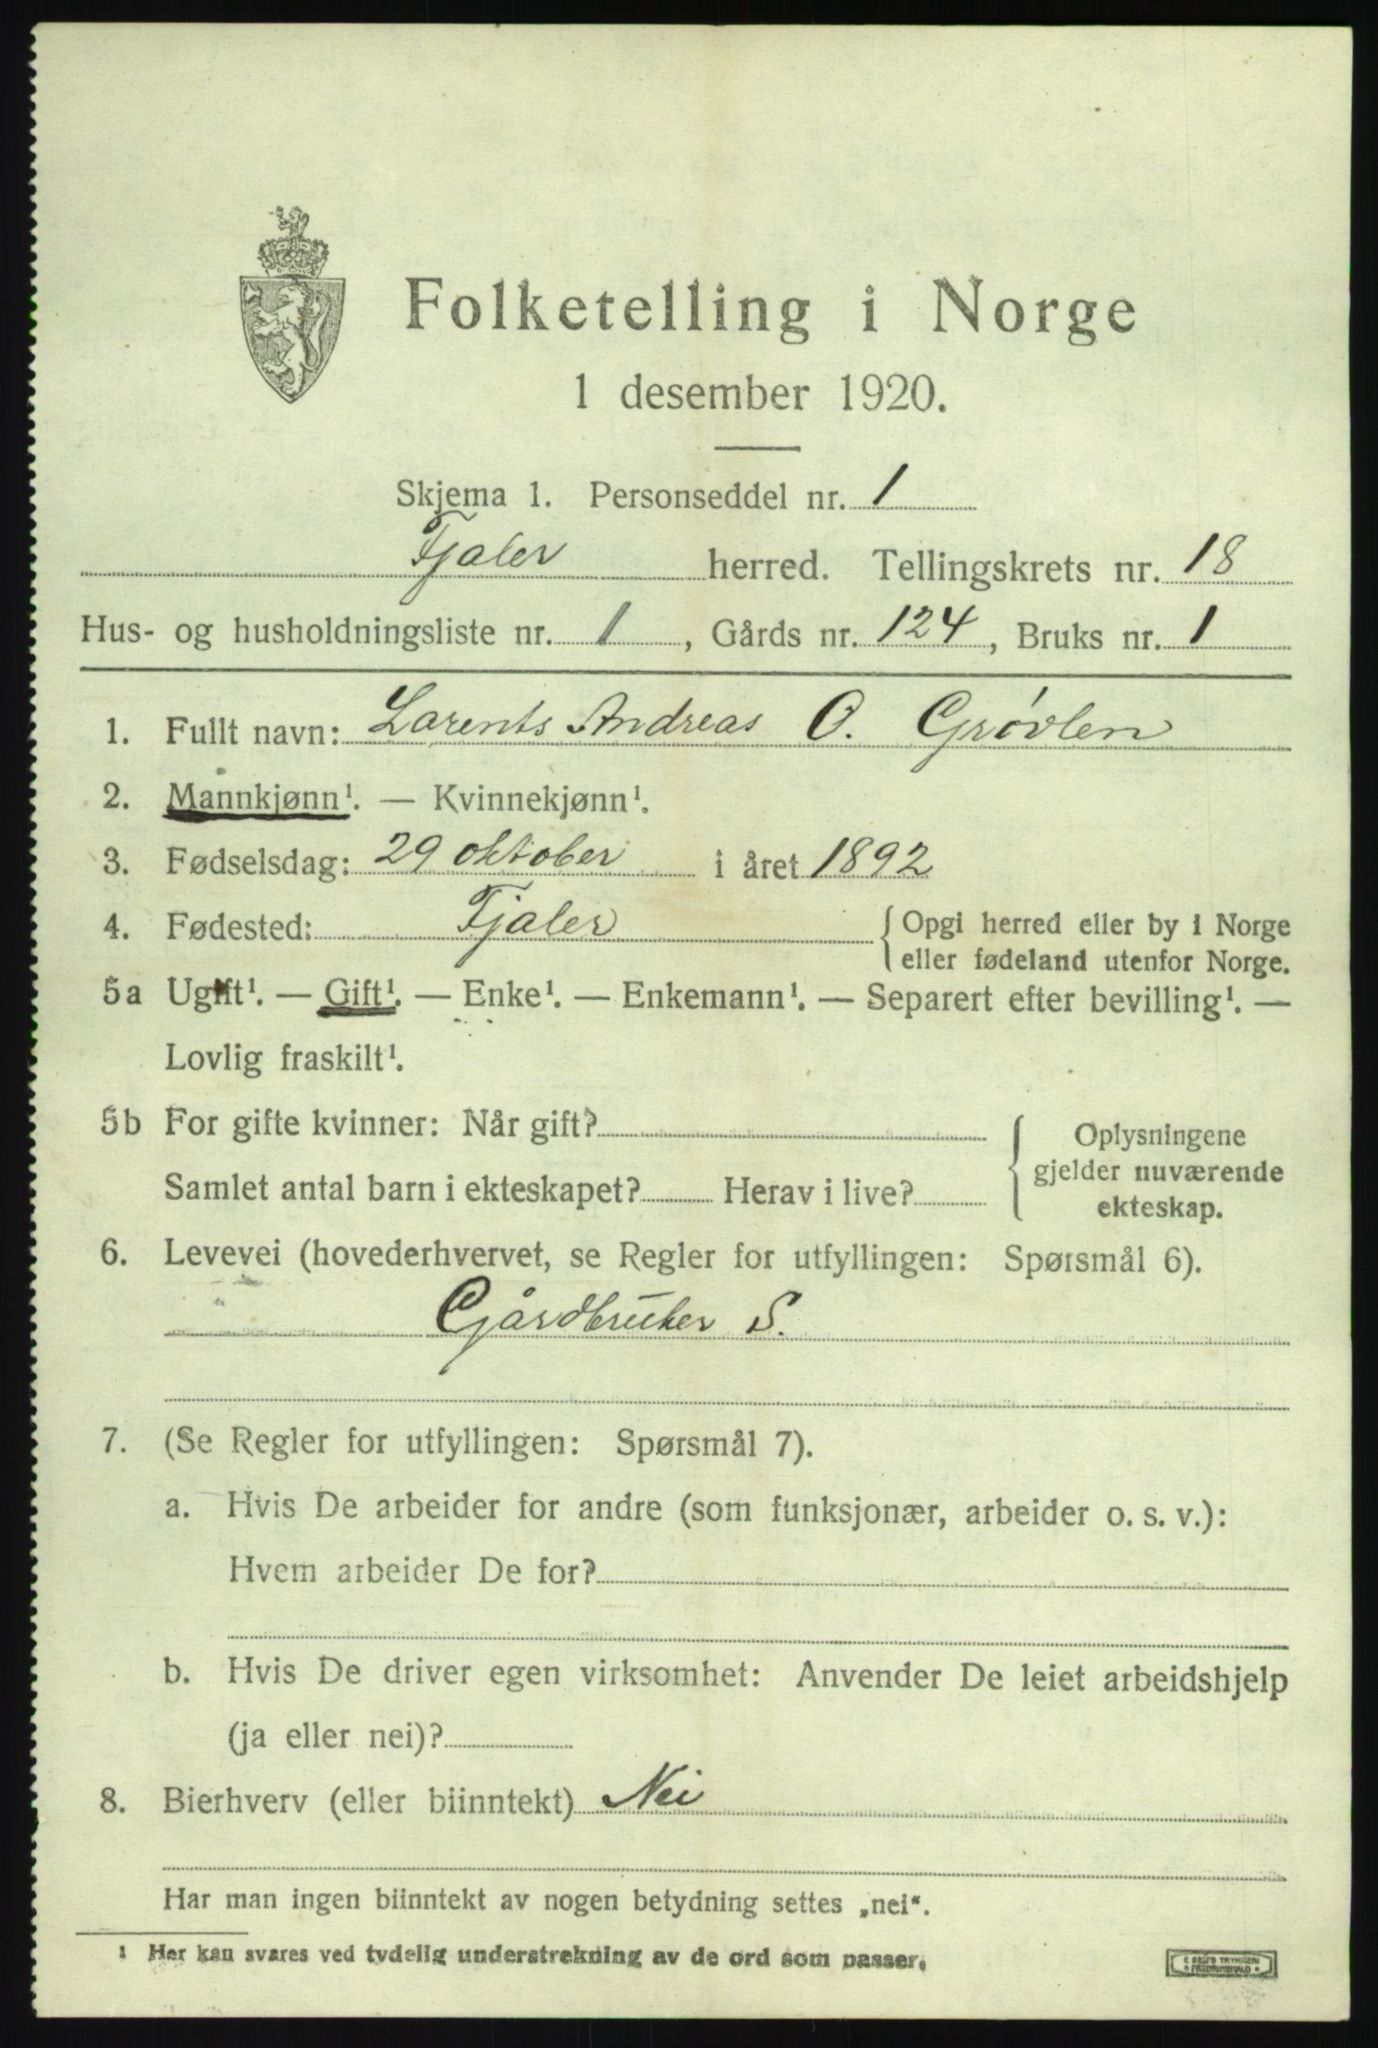 Folketelling i Norge
1 desember 1920.
Skjema 1. Personseddel nr. 1
Fjaler herred. Tellingskrets nr. 18
Hus- og husholdningsliste nr. 1, Gårds nr. 124, Bruks nr. 1
1. Fullt navn: Larents Andreas O. Grøvlen
2. Mannkjønn¹. — Kvinnekjønn¹.
3. Fødselsdag: 29 oktober i året 1892
4. Fødested: Fjaler { Opgi herred eller by i Norge
eller fødeland utenfor Norge.
5a Ugift¹. — Gift¹. — Enke¹. — Enkemann¹. — Separert efter bevilling¹. —
Lovlig fraskilt¹.
5b For gifte kvinner: Når gift?
Samlet antal barn i ekteskapet? Herav i live?
Oplysningene
gjelder nuværende
ekteskap.
6. Levevei (hovederhvervet, se Regler for utfyllingen: Spørsmål 6).
Gårdbruker S.
7. (Se Regler for utfyllingen: Spørsmål 7).
a. Hvis De arbeider for andre (som funksjonær, arbeider o. s. v.):
Hvem arbeider De for?
b. Hvis De driver egen virksomhet: Anvender De leiet arbeidshjelp
(ja eller nei)?
8. Bierhverv (eller biinntekt) Nei
Har man ingen biinntekt av nogen betydning settes „nei“.
¹ Her kan svares ved tydelig understrekning av de ord som passer.